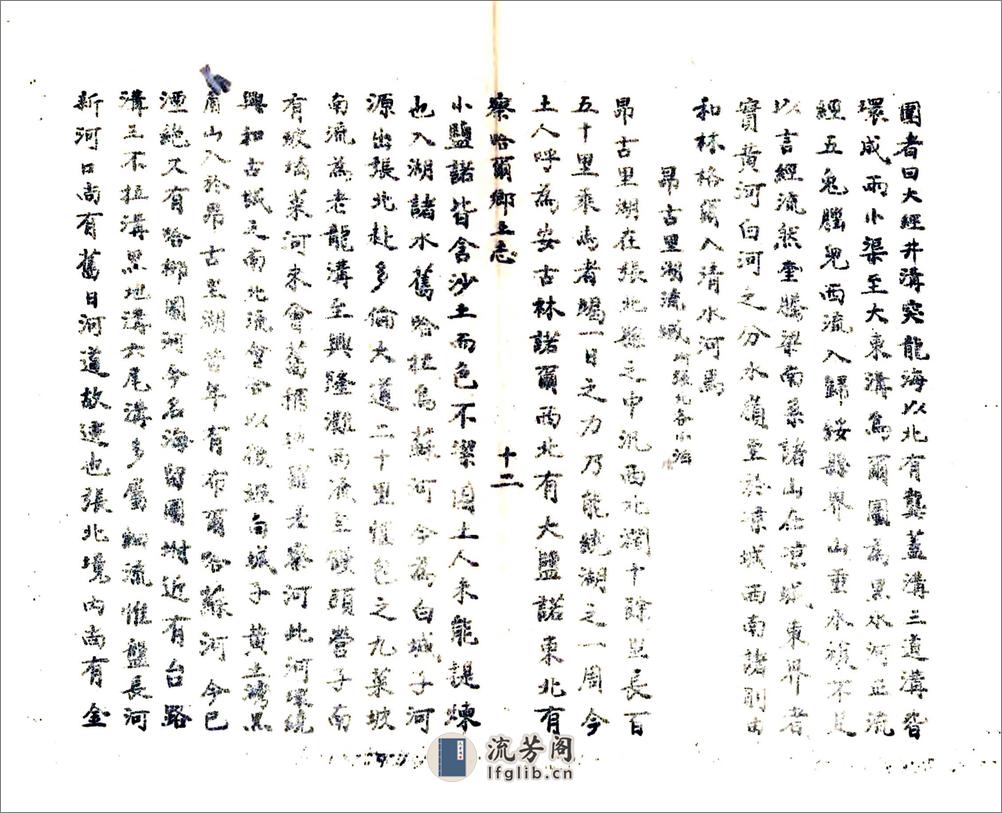 圖者曰大經井溝突龍海以北有龔蓋溝三道溝皆
環成兩小渠至大東溝爲爾圖爲黑水河正流
經五鬼腦兒西流入歸綏縣界山重水複不足
以言經流然奎騰梁南系諸山在涼城東界者
實黃河白河之分水嶺至於涼城西南諸則由
和林格爾入清水河焉
昂古里湖流域
昂古里湖在張北縣之中汛西北濶十餘里長百
五十里乘馬者竭一日之力乃能繞湖之一周今
土人呼爲安古林諾爾西北有大鹽諾東北有
察哈爾鄉土志
十二
小鹽諾皆含沙土而色不潔因土人未能提煉
也入湖諸水舊哈柱烏蘇河今爲白城子河
源出張北赴多倫大道二十里惟色之九菜坡
南流爲老龍溝至興隆灘西流至饅頭營子南
有玻璃菜河來會舊稱爾老察河此河環繞
興和古城之南北流會合以後經白城子黃土灣黑
眉山入於昂古里湖昔年有布爾哈蘇河今已
湮絶又有哈柳圖河今名海留圖坿近有台路
溝三不拉溝黑地溝六尾溝多屬細流惟盤長河
新河口尚有舊日河道故迹也張北境內尚有金
流芳阁
lfglib.cn